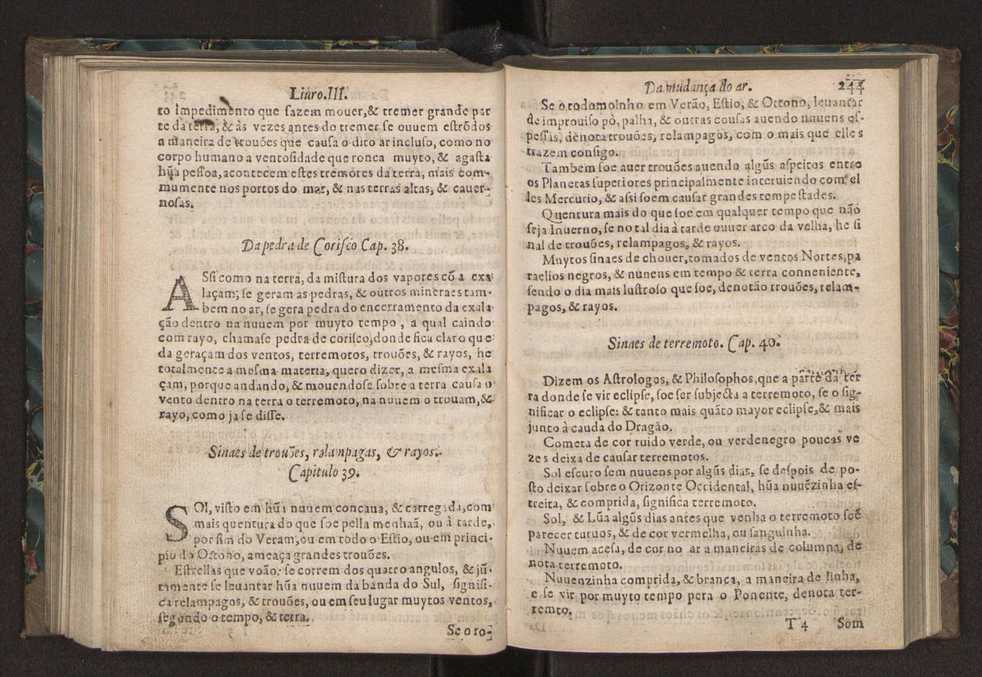 Liuro.III.
to impedimento que fazem mouer,& tremer grande par
te da terra,& às vezes antes do tremer se ouuem estrõdos
a maneira de trouões que causa o dito ar incluso, como no
corpo humano a ventosidade que ronca muyto, & agasta
hũa pessoa,acontecem estes tremores da terra, mais com-
mumente nos portos do mar, & nas terras altas, & cauer-
nosas.
Da pedra de Corisco Cap. 38.
ASsi como na terra, da mistura dos vapores cõ a exa
laçam; se geram as pedras, & outros mineraes tam-
bem no ar, se gera pedra do encerramento da exala
ção dentro na nuuem por muyto tempo, a qual caindo
com rayo, chamase pedra de corisco;donde fica claro que
da geraçam dos ventos, terremotos, trouões, & rayos, he
totalmente a mesma materia, quero dizer, a mesma exala
çam, porque andando, & mouendose sobre a terra causa o
vento dentro na terra o terremoto, na nuuem o trouam,&
rayo, como ja se disse.
Sinaes de trouões, relampagas, & rayos.
Capitulo 39.
SOl, visto em hũa nuuem concaua, & carregada,com
mais quentura do que soe pella menhaã, ou à tarde,
por fim do Veram,ou em todo o Estio, ou em princi-
pio do Octono, ameaça grandes trouões.
Estrellas que voão, se correm dos quatro angulos, & jũ-
tamente se leuantar hũa nuuem da banda do Sul, signifi-
ca relampagos, & trouões, ou em seu lugar muytos ventos,
segundo o tempo, & terra.
Se o ro-
Da mudança do ar. 244
Se o rodomoinho em Verão, Estio, & Octono, leuantar
de improuiso pò, palha, & outras cousas auendo nuuens es-
pessas, denota trouões, relampagos, com o mais que elles
trazem consigo.
Tambem soe auer trouões auendo algũs aspeitos entre
os Planetas superiores principalmente interuindo com el
les Mercurio, & assi soem causar grandes tempestades.
Quentura mais do que soe em qualquer tempo que não
seja Inuerno, se no tal dia à tarde ouuer arco da velha, he si
nal de trouões, relampagos, & rayos.
Muytos sinaes de chouer, tomados de ventos Nortes,pa
raelios negros, & nuuens em tempo & terra conueniente,
sendo o dia mais lustroso que soe, denotão trouões, relam-
pagos, & rayos.
Sinaes de terremoto. Cap. 40.
Dizem os Astrologos, & Philosophos,que a parte da ter
ra donde se vir eclipse, soe ser subjecta a terremoto, se o sig-
nificar o eclipse: & tanto mais quãto mayor eclipse,& mais
junto à cauda do Dragão.
Cometa de cor ruido verde, ou verdenegro poucas ve
zes deixa de causar terremotos.
Sol escuro sem nuuens por algũs dias, se despois de po-
sto deixar sobre o Orizonte Occidental, hũa nuuẽzinha es-
treita, & comprida, significa terremoto.
Sol, & Lũa algũs dias antes que venha o terremoto soẽ
parecer turuos, & de cor vermelha, ou sanguinha.
Nuuem acesa, de cor no ar a maneiras de columna, de
nota terremoto.
Nuuenzinha comprida, & branca, a maneira de linha,
e se vir por muyto tempo pera o Ponente, denota ter-
remto.
T 4 Som